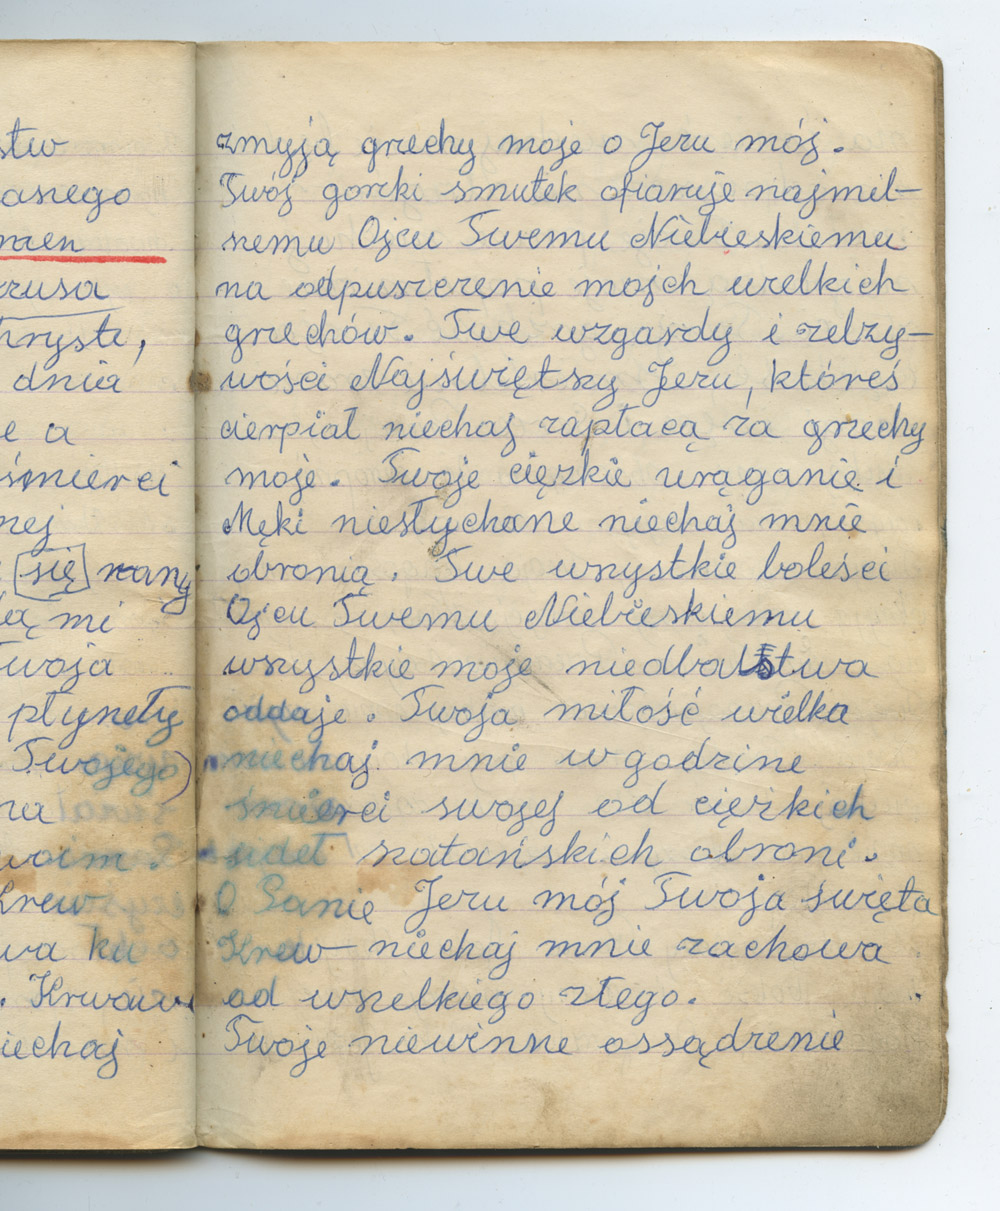 stw
asnego
men
zusa
hryste,
dnia
e a
śmierci
nej
się rany
mi
woja
płynęły
Twojego)
na
woim
Krew
wa ku
. Krwaw
iechaj
zmyją grzechy moje o Jezu mój.
Twój gorzki smutek ofiaruje najmil-
szemu Ojcu Twemu Niebieskiemu
na odpuszczenie mojch wielkich
grzechów. Twe wzgardy i zelży-
wości Najświętszy Jezu, któreś
cierpiał niechaj zapłacą za grzechy
moje. Twoje ciężkie urąganie i
Męki niesłychane niechaj mnie
obronią. Twe wszystkie boleści
Ojcu Twemu Niebieskiemu
wszystkie moje niedbalstwa
oddaje. Twoja miłość wielka
niechaj mnie w godzine
śmierci swojej od ciężkich
sideł szatańskich obroni.
O Panie Jezu mój Twoja święta
Krew niechaj mnie zachowa
od wszelkiego złego.
Twoje niewinne ossądzenie